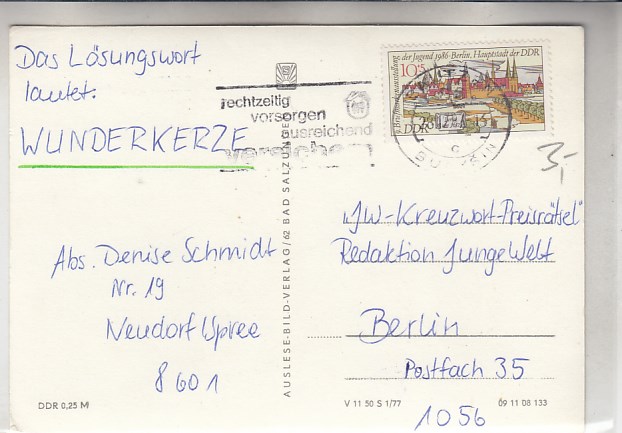 Das Lösungswort
lautet:
WUNDERKERZE
Abs. Denise Schmidt
Nr. 19
Neudorf/Spree
8601
DDR 0,25 M
AUSLESE-BILD-VERLAG/62 BAD SALZUNGEN
rechtzeitig
vorsorgen
ausreichend
versichern
Briefmarkenausstellung der Jugend 1986-Berlin, Hauptstadt der DDR
10+5
DDR
3,-
"JW-Kreuzwort-Preisrätsel"
Redaktion JungeWelt
Berlin
Postfach 35
1056
V 11 50 S 1/77
Ö9 11 08 133